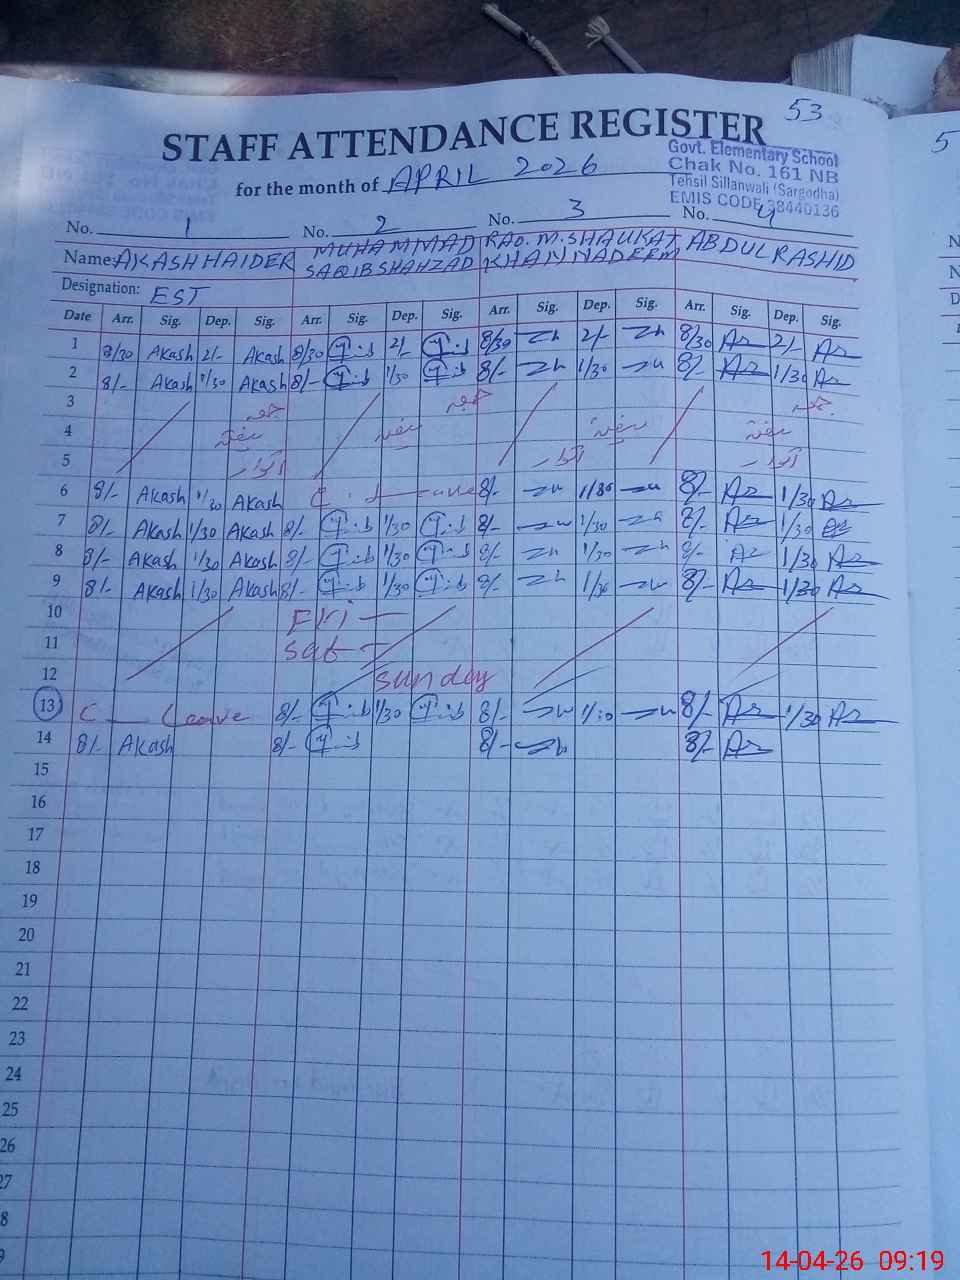 53
STAFF ATTENDANCE REGISTER
for the month of APRIL 2026
Govt. Elementary School
Chak No. 161 NB
Tehsil Sillanwali (Sargodha)
EMIS CODE 38440136
No. 1 No. 2 No. 3 No. 4
Name: AKASH HAIDER MUHAMMAD SAQIB SHAHZAD RAO. M. SHAUKAT KHAN NADEEM ABDUL RASHID
Designation: EST
Date Arr. Sig. Dep. Sig. Arr. Sig. Dep. Sig. Arr. Sig. Dep. Sig. Arr. Sig. Dep. Sig.
1 8/30 Akash 2/- Akash 8/30 2/- 8/30 2/- 8/30 2/-
2 8/- Akash 1/30 Akash 8/- 1/30 8/- 1/30 8/- 1/30
3 جمعہ جمعہ جمعہ
4 ہفتہ ہفتہ ہفتہ ہفتہ
5 اتوار اتوار اتوار
6 8/- Akash 1/30 Akash C. Leave 8/- 1/30 8/- 1/30
7 8/- Akash 1/30 Akash 8/- 1/30 8/- 1/30 8/- 1/30
8 8/- Akash 1/30 Akash 8/- 1/30 8/- 1/30 8/- 1/30
9 8/- Akash 1/30 Akash 8/- 1/30 8/- 1/30 8/- 1/30
10 Fri
11 Sat
12 Sunday
13 C Leave 8/- 1/30 8/- 1/30 8/- 1/30
14 8/- Akash 8/- 8/- 8/-
15
16
17
18
19
20
21
22
23
24
25
26
27
8
9
5
N
N
D
14-04-26 09:19